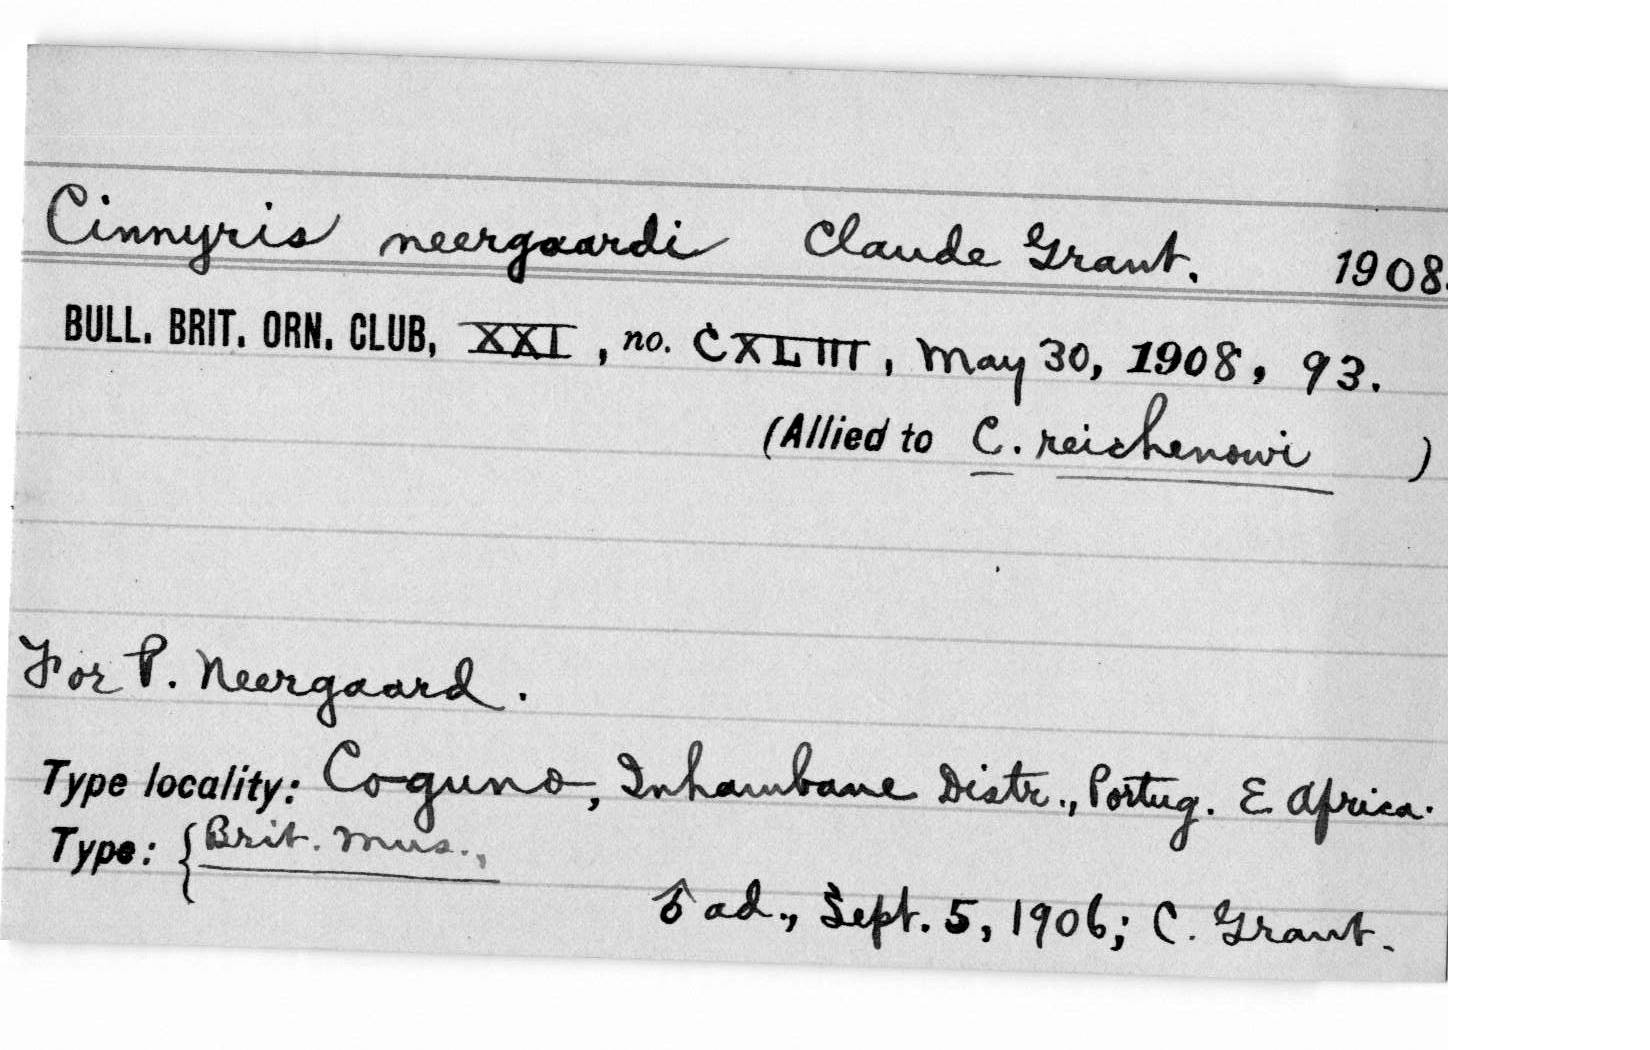 Cinnyris neergaardi Claude Grant. 1908.
BULL. BRIT. ORN. CLUB, XXI, no. CXLIII, May 30, 1908, 93.
(Allied to C. reichenowi )
For P. Neergaard.
Type locality: Coguno, Inhambane Distr., Portug. E. Africa.
Type: { Brit. Mus.,
♂ ad., Sept. 5, 1906; C. Grant.